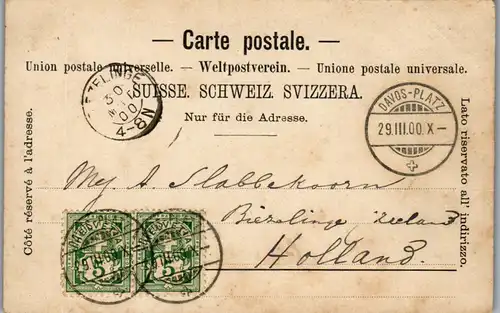 — Carte postale. —
Union postale universelle. — Weltpostverein. — Unione postale universale.
SUISSE. SCHWEIZ. SVIZZERA.
Nur für die Adresse.
Côté réservé à l'adresse.
Lato riservato all' indirizzo.
BIEZELINGE
30
00
4-8N
DAVOS-PLATZ
29.III.00.X—
A. Slabbekoorn
Biezelinge Zeeland
Holland.
5 5